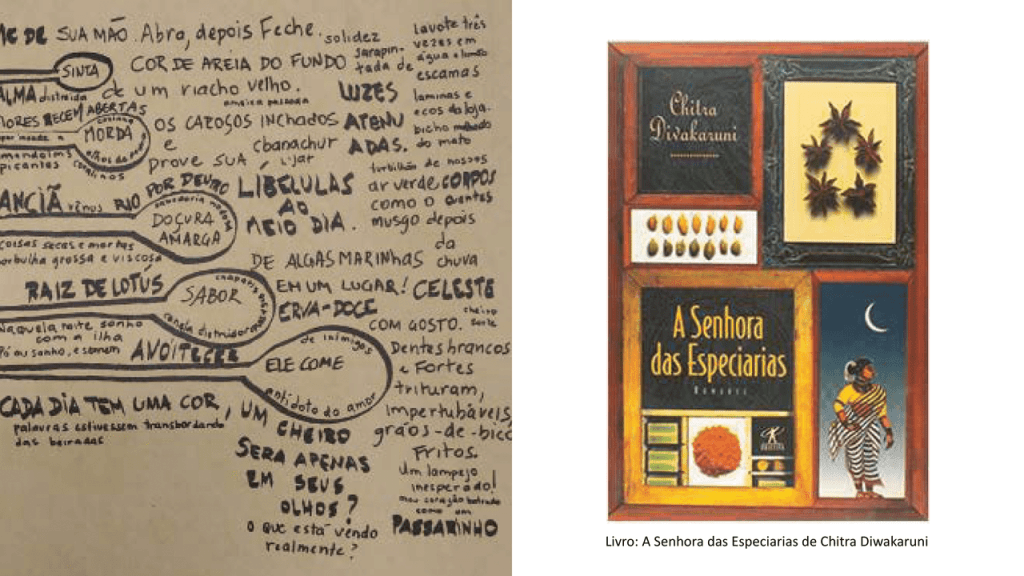 SUA MÃO. Abra, depois Feche.
SINTA
COR DE AREIA DO FUNDO
ALMA distraída
de um riacho velho.
RECEM ABERTAS
MORDA
OS CAROÇOS INCHADOS
e
prove SUA
picantes
POR DENTRO
ANCIÃ
RIO
DOÇURA
AMARGA
coisas secas e mortas
borbulha grossa e viscosa
RAIZ DE LOTÚS
SABOR
Naquela noite sonho
com a ilha
AVOITECER
de inimigos
ELE COME
antidoto do amor
CADA DIA TEM UMA COR, UM
CHEIRO
palavras estivessem transbordando
das beiradas
SERA APENAS
EM SEUS
OLHOS?
O que está vendo
realmente?
LIBÉLULAS
AO
MEIO DIA.
DE ALGAS MARINHAS
EM UM LUGAR!
ERVA-DOCE
COM GOSTO.
solidez
sarapin-
tada de
LUZES
ATENU
ADAS.
lavo-te três
vezes em
água e limão
escamas
laminas e
ecos da loja.
bicho
do mato
turbilhão de nossos
ar verde CORPOS
como o quentes
musgo depois
da
chuva
CELESTE
cheiro
forte
Dentes brancos
e Fortes
trituram,
impertubáveis,
grãos-de-bico
Fritos.
Um lampejo
inesperado!
meu coração
como um
PASSARINHO
Chitra
Divakaruni
A Senhora
das Especiarias
ROMANCE
OBJETIVA
Livro: A Senhora das Especiarias de Chitra Diwakaruni